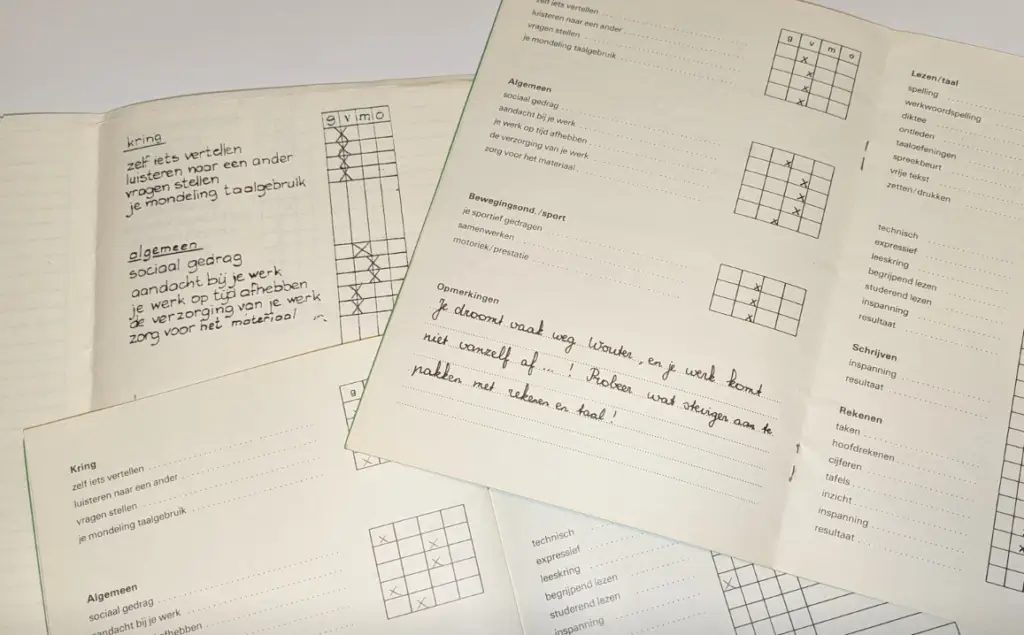 kring
zelf iets vertellen
luisteren naar een ander
vragen stellen
je mondeling taalgebruik
g v m o
algemeen
sociaal gedrag
aandacht bij je werk
je werk op tijd afhebben
de verzorging van je werk
zorg voor het materiaal
zelf iets vertellen
luisteren naar een ander
vragen stellen
je mondeling taalgebruik
g v m o
Algemeen
sociaal gedrag
aandacht bij je werk
je werk op tijd afhebben
de verzorging van je werk
zorg voor het materiaal
Bewegingsond./sport
je sportief gedragen
samenwerken
motoriek/prestatie
Opmerkingen
Je droomt vaak weg Wouter, en je werk komt
niet vanzelf af ... ! Probeer wat steviger aan te
pakken met rekenen en taal!
Lezen/taal
spelling
werkwoordspelling
diktee
ontleden
taaloefeningen
spreekbeurt
vrije tekst
zetten/drukken
technisch
expressief
leeskring
begrijpend lezen
studerend lezen
inspanning
resultaat
Schrijven
inspanning
resultaat
Rekenen
taken
hoofdrekenen
cijferen
tafels
inzicht
inspanning
resultaat
Kring
zelf iets vertellen
luisteren naar een ander
vragen stellen
je mondeling taalgebruik
g
Algemeen
sociaal gedrag
aandacht bij je werk
afhebben
technisch
expressief
leeskring
begrijpend lezen
studerend lezen
inspanning